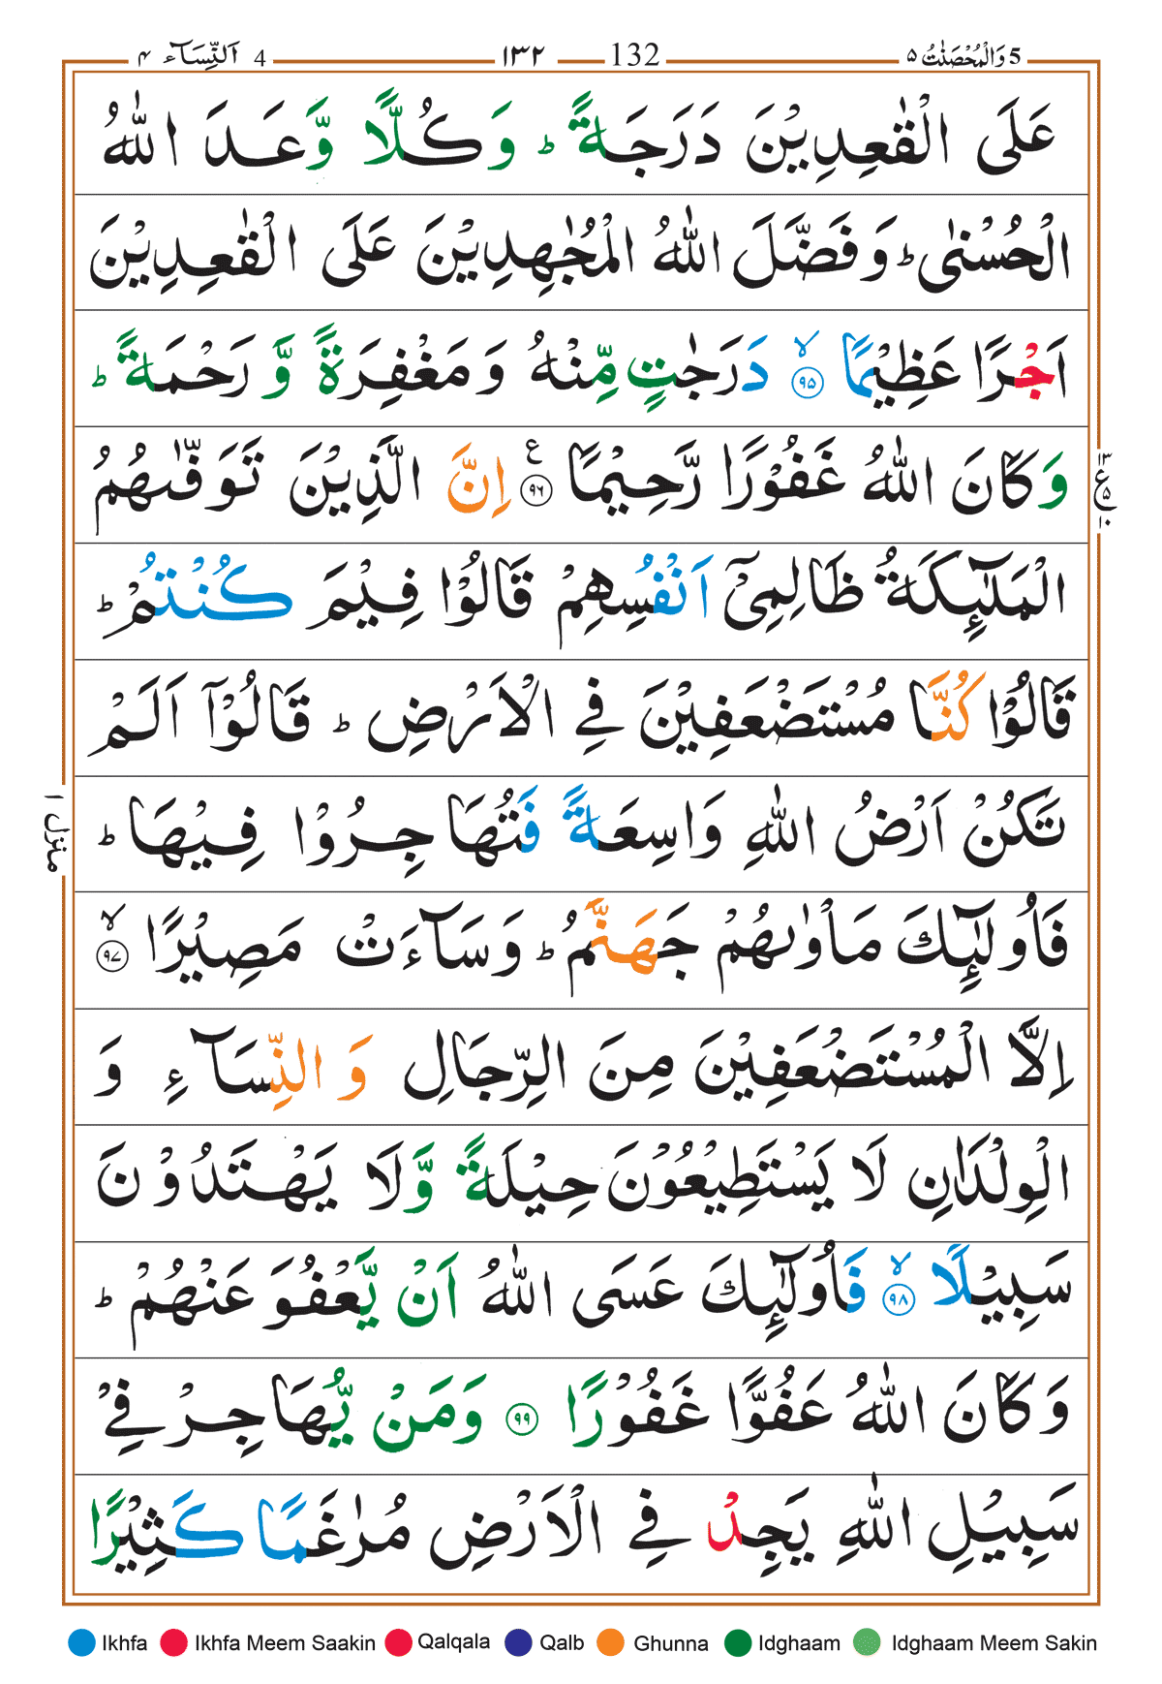 5 وَالْمُحْصَنٰتُ ۵ 132 ۱۳۲ 4 اَلنِّسَآء ۴
عَلَى الْقٰعِدِيْنَ دَرَجَةً ؕ وَكُلًّا وَّعَدَ اللّٰهُ
الْحُسْنٰى ؕ وَفَضَّلَ اللّٰهُ الْمُجٰهِدِيْنَ عَلَى الْقٰعِدِيْنَ
اَجْرًا عَظِيْمًا ۙ‏ ﴿۹۵﴾ دَرَجٰتٍ مِّنْهُ وَمَغْفِرَةً وَّرَحْمَةً ؕ
وَكَانَ اللّٰهُ غَفُوْرًا رَّحِيْمًا ﴿۹۶﴾ ع اِنَّ الَّذِيْنَ تَوَفّٰٮهُمُ
الْمَلٰٓئِكَةُ ظَالِمِىْۤ اَنْفُسِهِمْ قَالُوْا فِيْمَ كُنْتُمْ ؕ
قَالُوْا كُنَّا مُسْتَضْعَفِيْنَ فِى الْاَرْضِ ؕ قَالُوْۤا اَلَمْ
تَكُنْ اَرْضُ اللّٰهِ وَاسِعَةً فَتُهَاجِرُوْا فِيْهَا ؕ
فَاُولٰٓئِكَ مَاْوٰٮهُمْ جَهَنَّمُ ؕ وَسَآءَتْ مَصِيْرًا ۙ ﴿۹۷﴾
اِلَّا الْمُسْتَضْعَفِيْنَ مِنَ الرِّجَالِ وَ النِّسَآءِ وَ
الْوِلْدَانِ لَا يَسْتَطِيْعُوْنَ حِيْلَةً وَّلَا يَهْتَدُوْنَ
سَبِيْلًا ۙ ﴿۹۸﴾ فَاُولٰٓئِكَ عَسَى اللّٰهُ اَنْ يَّعْفُوَ عَنْهُمْ ؕ
وَكَانَ اللّٰهُ عَفُوًّا غَفُوْرًا ﴿۹۹﴾ وَمَنْ يُّهَاجِرْ فِىْ
سَبِيْلِ اللّٰهِ يَجِدْ فِى الْاَرْضِ مُرٰغَمًا كَثِيْرًا
منزل ۱
Ikhfa Ikhfa Meem Saakin Qalqala Qalb Ghunna Idghaam Idghaam Meem Sakin